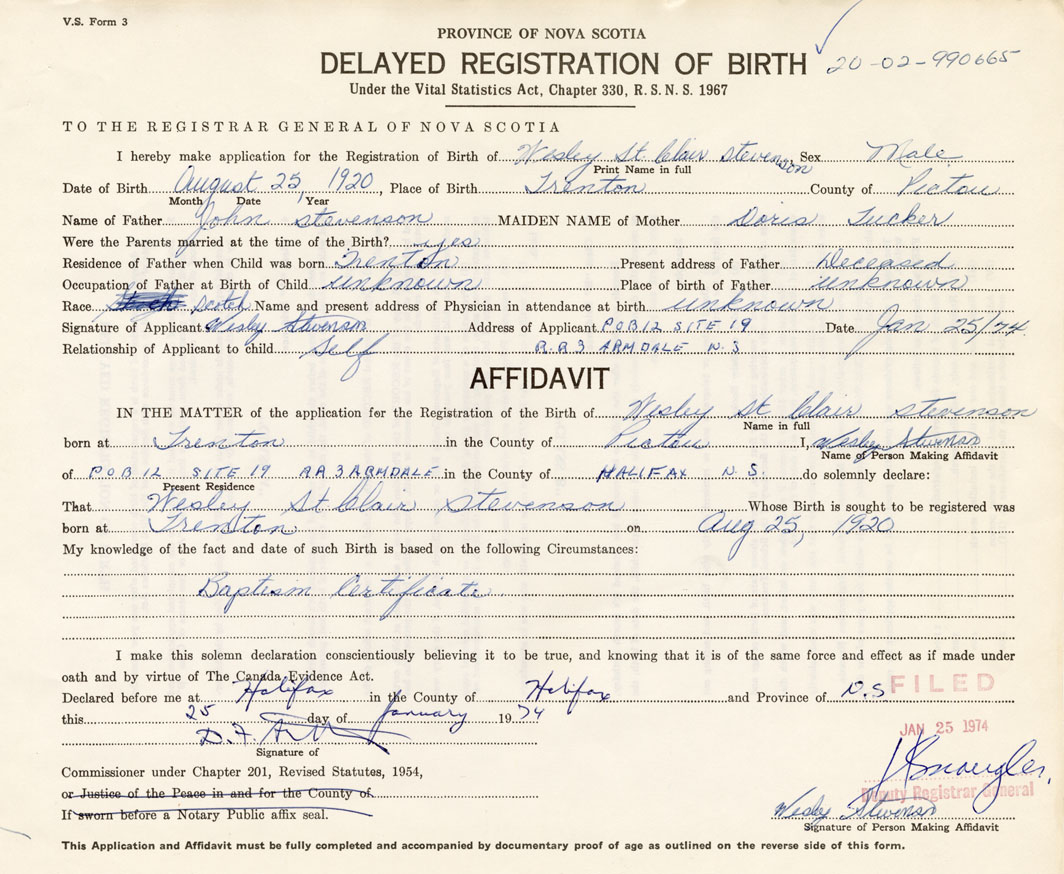 V.S. Form 3
PROVINCE OF NOVA SCOTIA
DELAYED REGISTRATION OF BIRTH 20-02-990665
Under the Vital Statistics Act, Chapter 330, R. S. N. S. 1967
TO THE REGISTRAR GENERAL OF NOVA SCOTIA
I hereby make application for the Registration of Birth of Wesley St Clair Stevenson, Sex Male
Print Name in full
Date of Birth August 25, 1920, Place of Birth Trenton County of Pictou
Month Date Year
Name of Father John Stevenson MAIDEN NAME of Mother Doris Tucker
Were the Parents married at the time of the Birth? yes
Residence of Father when Child was born Trenton Present address of Father Deceased
Occupation of Father at Birth of Child unknown Place of birth of Father unknown
Race Scotch Name and present address of Physician in attendance at birth unknown
Signature of Applicant Wesley Stevenson Address of Applicant P.O B12 SITE 19 Date Jan 25/74
Relationship of Applicant to child Self R.R3 ARMDALE N.S
AFFIDAVIT
IN THE MATTER of the application fer the Registration of the Birth of Wesley St Clair Stevenson
Name in full
born at Trenton in the County of Pictou I, Wesley Stevenson
Name of Person Making Affidavit
of P.O B 12 SITE 19 RR3 ARMDALE in the County of HALIFAX N.S. do solemnly declare:
Present Residence
That Wesley St Clair Stevenson Whose Birth is sought to be registered was
born at Trenton on Aug 25, 1920
My knowledge of the fact and date of such Birth is based on the following Circumstances:
Baptism Certificate
I make this solemn declaration conscientiously believing it to be true, and knowing that it is of the same force and effect as if made under
oath and by virtue of The Canada Evidence Act.
Declared before me at Halifax in the County of Halifax and Province of N.S
FILED
this 25 day of January 1974
JAN 25 1974
D.F.
Signature of
Commissioner under Chapter 201, Revised Statutes, 1954,
or Justice of the Peace in and for the County of
Deputy Registrar General
If sworn before a Notary Public affix seal.
Wesley Stevenson
Signature of Person Making Affidavit
This Application and Affidavit must be fully completed and accompanied by documentary proof of age as outlined on the reverse side of this form.